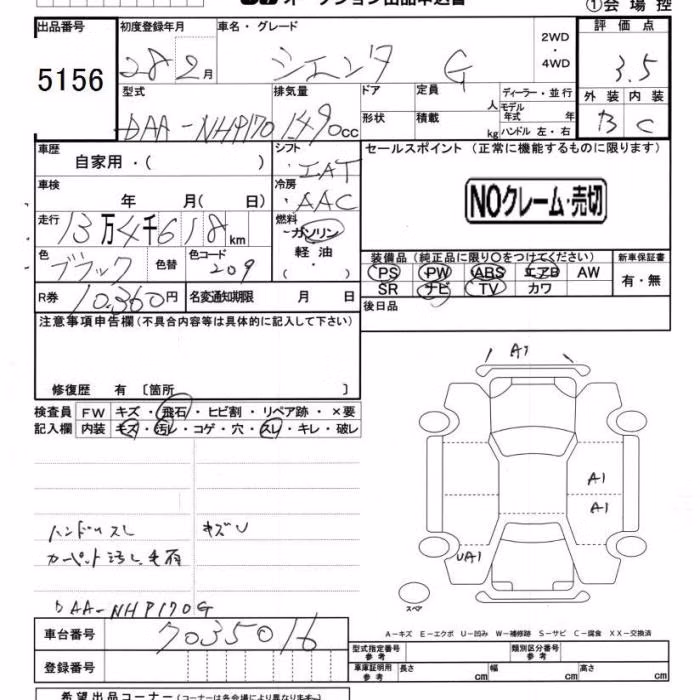 オークション出品申込書
①会場控
出品番号 初度登録年月 車名・グレード 2WD ・ 4WD 評価点
5156 28 2月 シエンタ G 3.5
型式 排気量 ドア 定員 人 ディーラー・並行 外装 内装
DAA-NHP170 1490cc 形状 積載 kg モデル年式 年 ハンドル 左・右 B C
車歴 自家用・( ) シフト ・IAT セールスポイント (正常に機能するものに限ります)
車検 年 月( 日) 冷房 ・AAC NOクレーム・売切
走行 13万4千618km 燃料 ガソリン 軽油 ( ・ )
装備品 (純正品に限り〇をつけてください) 新車保証書
色 ブラック 色替 色コード 209 PS PW ABS エアB AW 有・無
R券 10,360円 名変通知期限 月 日 SR ナビ TV カワ
注意事項申告欄 (不具合内容等は具体的に記入して下さい) 後日品
修復歴 有 〔箇所 〕
検査員 FW キズ・飛石・ヒビ割・リペア跡・×要
記入欄 内装 キズ・汚レ・コゲ・穴・スレ・キレ・破レ
A1
A1
A1
UA1
ハンドルスレ キズU
カーペット汚レ
DAA-NHP170G
スペア
A-キズ E-エクボ U-凹み W-補修跡 S-サビ C-腐食 XX-交換済
車台番号 7035016 型式指定番号 参考 類別区分番号 参考
登録番号 車庫証明用 参考 長さ cm 幅 cm 高さ cm
希望出品コーナー (コーナーは各会場により異なります)